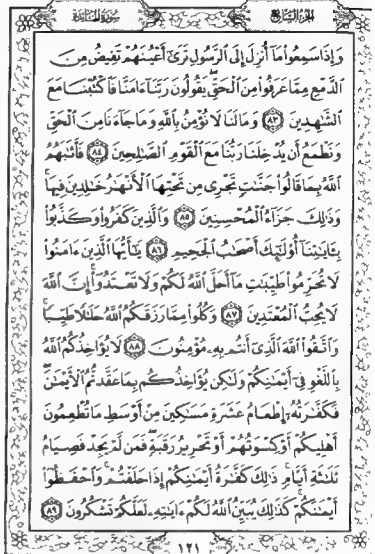 سورة المائدة
الجزء السابع
وَإِذَا سَمِعُوا۟ مَآ أُنزِلَ إِلَى ٱلرَّسُولِ تَرَىٰٓ أَعْيُنَهُمْ تَفِيضُ مِنَ
ٱلدَّمْعِ مِمَّا عَرَفُوا۟ مِنَ ٱلْحَقِّ ۖ يَقُولُونَ رَبَّنَآ ءَامَنَّا فَٱكْتُبْنَا مَعَ
ٱلشَّٰهِدِينَ ٨٣ وَمَا لَنَا لَا نُؤْمِنُ بِٱللَّهِ وَمَا جَآءَنَا مِنَ ٱلْحَقِّ
وَنَطْمَعُ أَن يُدْخِلَنَا رَبُّنَا مَعَ ٱلْقَوْمِ ٱلصَّٰلِحِينَ ٨٤ فَأَثَٰبَهُمُ
ٱللَّهُ بِمَا قَالُوا۟ جَنَّٰتٍ تَجْرِى مِن تَحْتِهَا ٱلْأَنْهَٰرُ خَٰلِدِينَ فِيهَا ۚ
وَذَٰلِكَ جَزَآءُ ٱلْمُحْسِنِينَ ٨٥ وَٱلَّذِينَ كَفَرُوا۟ وَكَذَّبُوا۟
بِـَٔايَٰتِنَآ أُو۟لَٰٓئِكَ أَصْحَٰبُ ٱلْجَحِيمِ ٨٦ يَٰٓأَيُّهَا ٱلَّذِينَ ءَامَنُوا۟
لَا تُحَرِّمُوا۟ طَيِّبَٰتِ مَآ أَحَلَّ ٱللَّهُ لَكُمْ وَلَا تَعْتَدُوٓا۟ ۚ إِنَّ ٱللَّهَ
لَا يُحِبُّ ٱلْمُعْتَدِينَ ٨٧ وَكُلُوا۟ مِمَّا رَزَقَكُمُ ٱللَّهُ حَلَٰلًا طَيِّبًا ۚ
وَٱتَّقُوا۟ ٱللَّهَ ٱلَّذِىٓ أَنتُم بِهِۦ مُؤْمِنُونَ ٨٨ لَا يُؤَاخِذُكُمُ ٱللَّهُ
بِٱللَّغْوِ فِىٓ أَيْمَٰنِكُمْ وَلَٰكِن يُؤَاخِذُكُم بِمَا عَقَّدتُّمُ ٱلْأَيْمَٰنَ ۖ
فَكَفَّٰرَتُهُۥٓ إِطْعَامُ عَشَرَةِ مَسَٰكِينَ مِنْ أَوْسَطِ مَا تُطْعِمُونَ
أَهْلِيكُمْ أَوْ كِسْوَتُهُمْ أَوْ تَحْرِيرُ رَقَبَةٍ ۖ فَمَن لَّمْ يَجِدْ فَصِيَامُ
ثَلَٰثَةِ أَيَّامٍ ۚ ذَٰلِكَ كَفَّٰرَةُ أَيْمَٰنِكُمْ إِذَا حَلَفْتُمْ ۚ وَٱحْفَظُوٓا۟
أَيْمَٰنَكُمْ ۚ كَذَٰلِكَ يُبَيِّنُ ٱللَّهُ لَكُمْ ءَايَٰتِهِۦ لَعَلَّكُمْ تَشْكُرُونَ ٨٩
١٢١